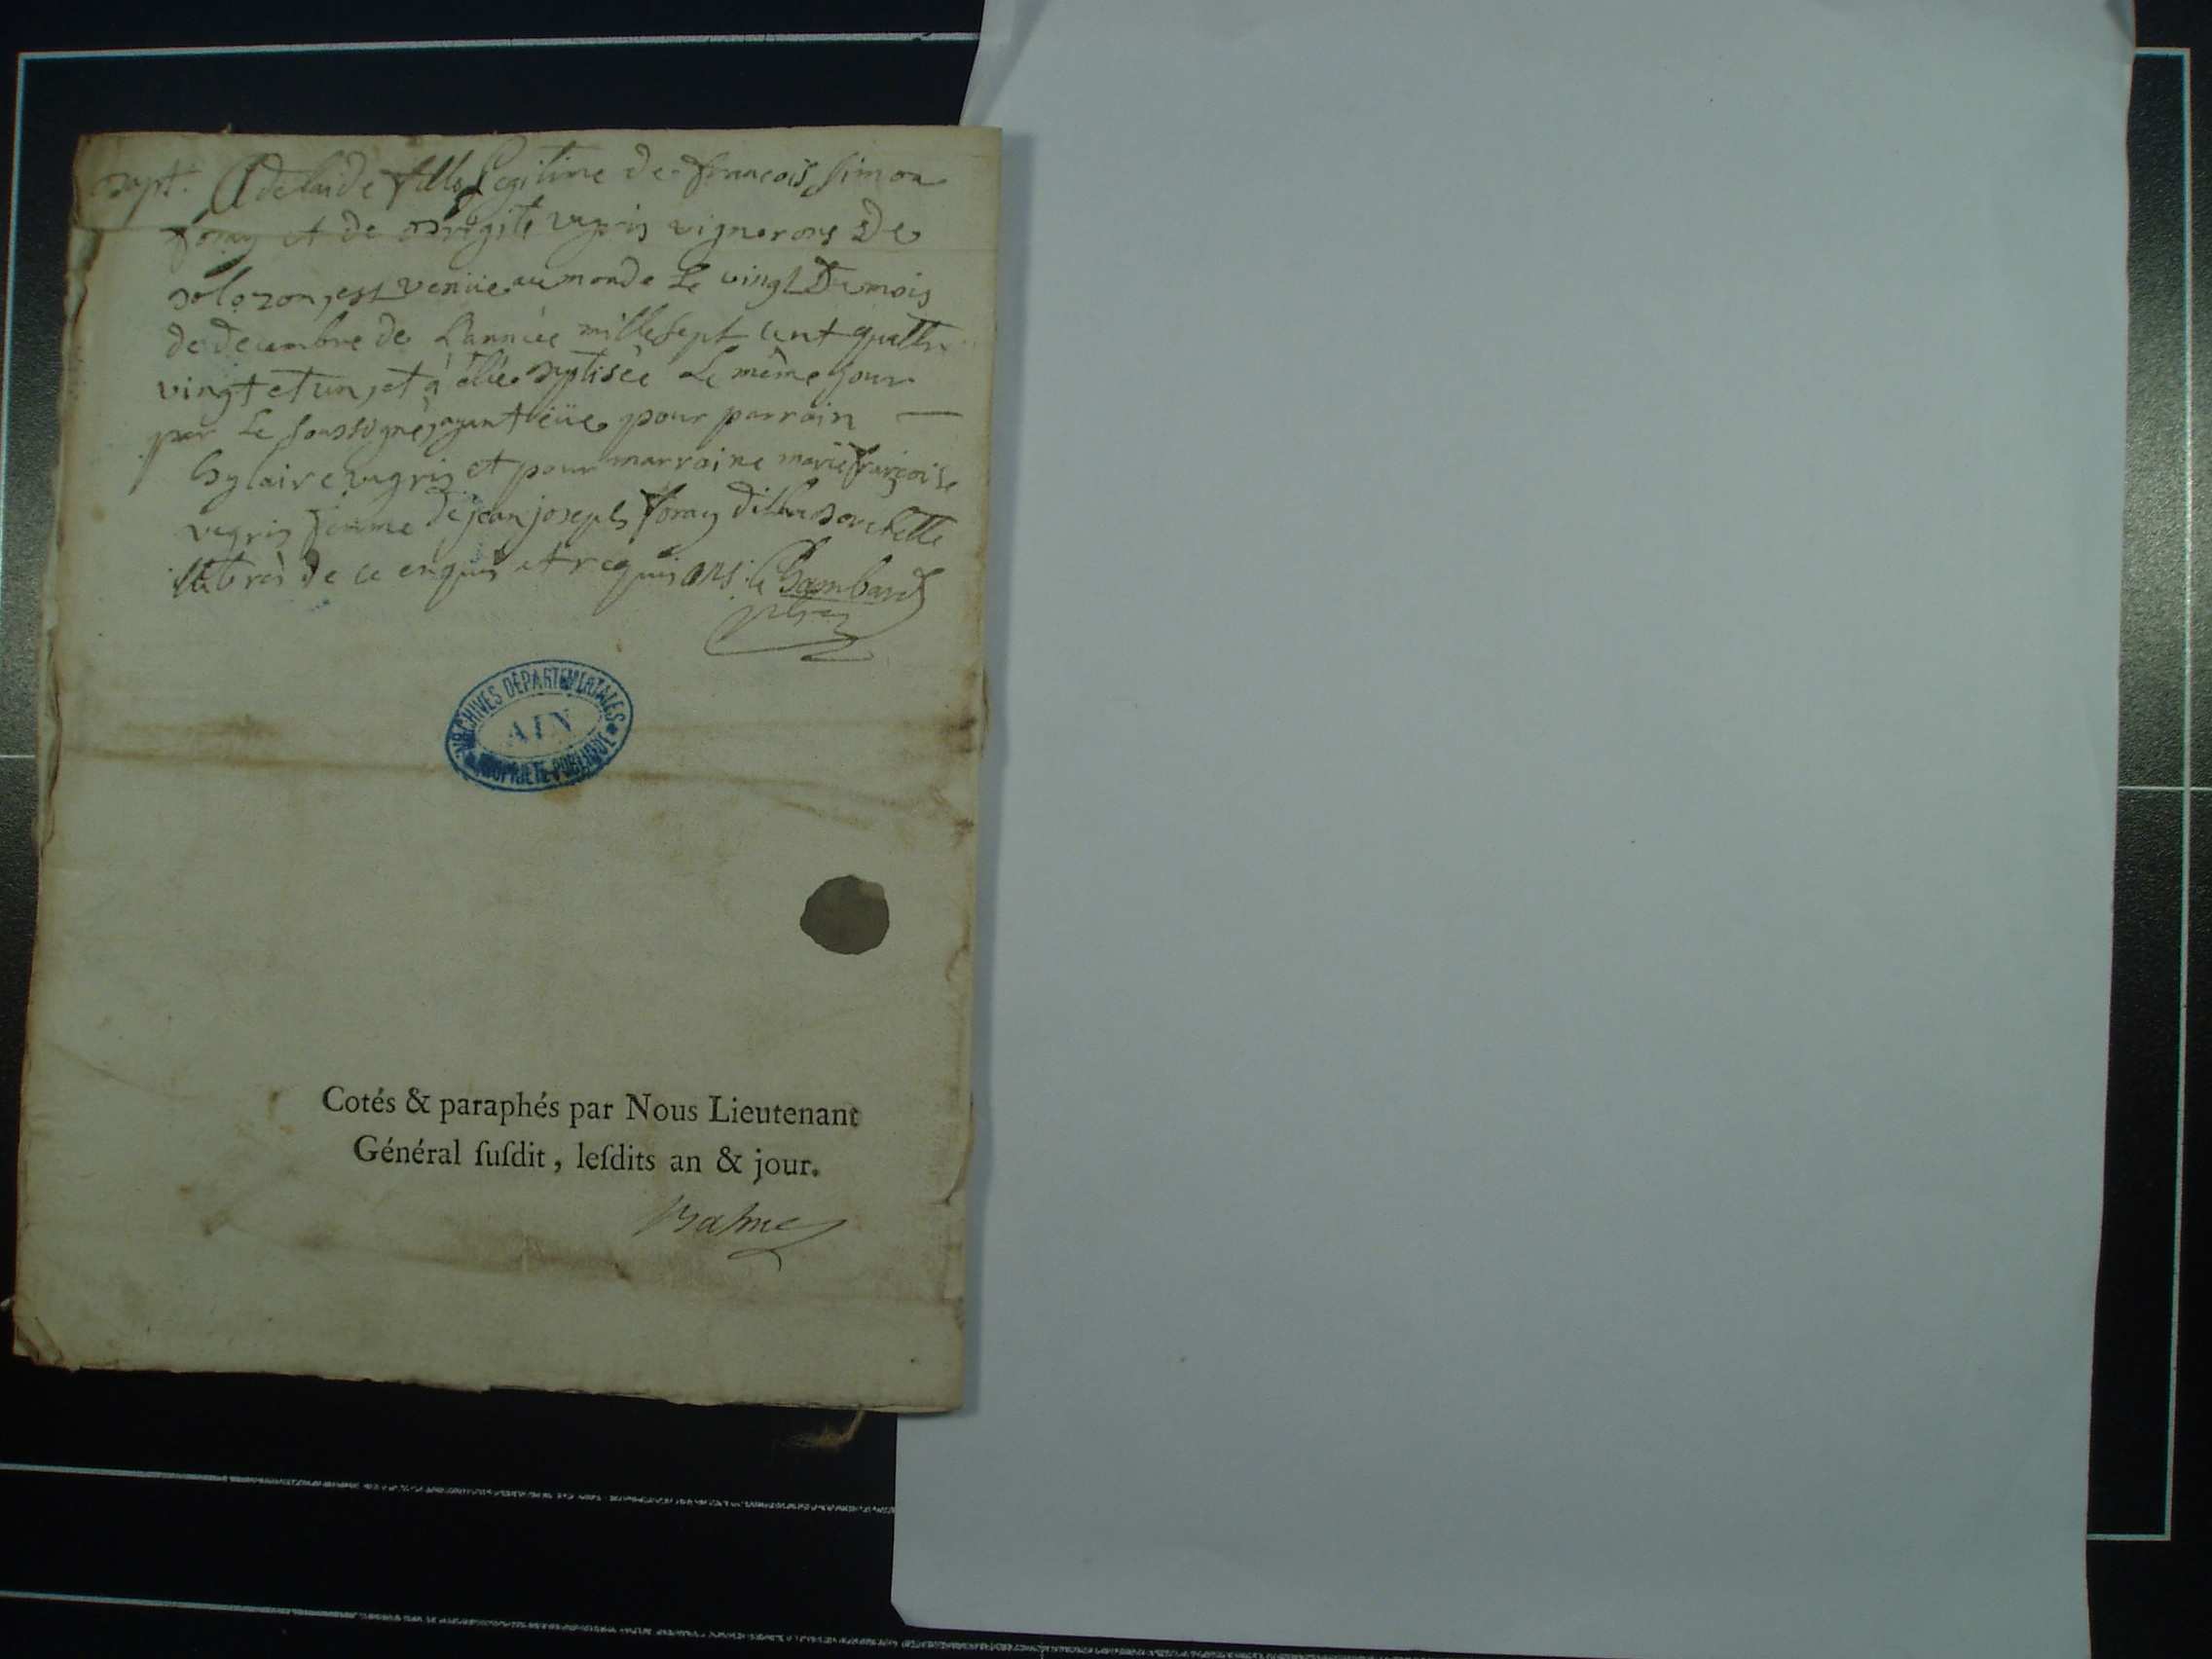 bapt. Adelaide fille Legitime de francois simon
foray et de brigite vugris vignerons de
bolozon, est venüe au monde Le vingt Du mois
de decembre de L'année mille sept cent quattre
vingt et un, et à étée baptisée Le même jour
par Le soussigné, ayant eüe pour parrain
hylaire vugris et pour marraine marie françoise
vugris femme de jean joseph foray
illiterés de ce enquis et requis
ARCHIVES DEPARTEMENTALES
AIN
PROPRIETE PUBLIQUE
Cotés & paraphés par Nous Lieutenant
Général ſuſdit, leſdits an & jour.
Balme